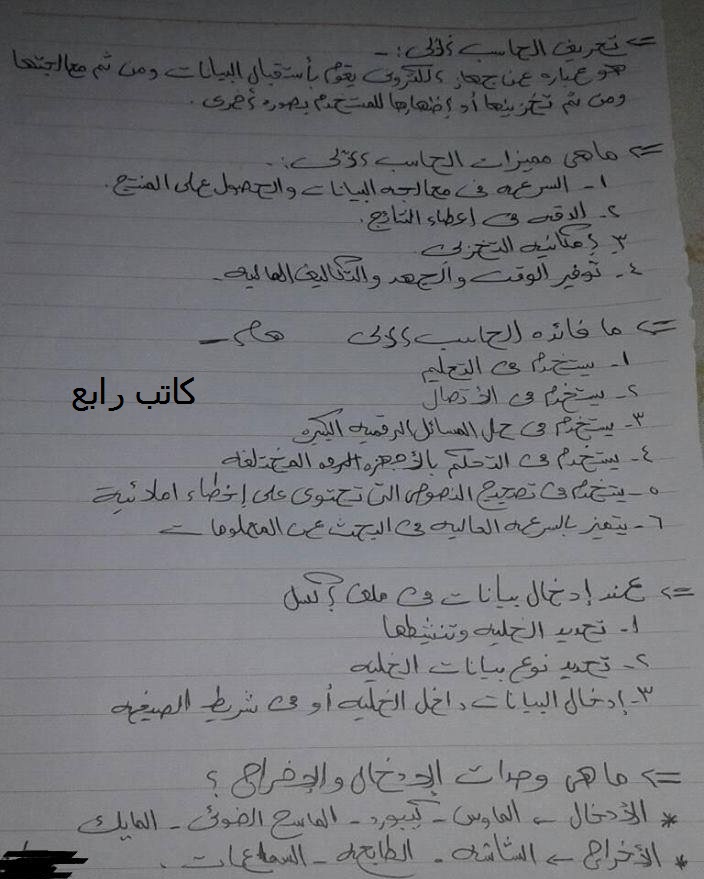 => تعريف الحاسب الالى :-
هو عباره عن جهاز الكترونى يقوم بأستقبال البيانات ومن ثم معالجتها
ومن ثم تخزينها أو إظهارها للمستخدم بصوره أخرى .
=> ماهى مميزات الحاسب الالى :-
١- السرعه فى معالجه البيانات والحصول على المنتج .
٢- الدقه فى إعطاء النتائج .
٣- إمكانيه التخزين
٤- توفير الوقت والجهد والتكاليف الماليه .
=> ما فائده الحاسب الالى هام -
١- يستخدم فى التعليم
٢- يستخدم فى الأتصال
كاتب رابع
٣- يستخدم فى حل المسائل الرقميه الكبيره
٤- يستخدم فى التحكم بالأجهزه المختلفه
٥- يستخدم فى تصحيح النصوص التى تحتوى على إخطاء املائية
٦- يتميز بالسرعه العاليه فى البحث عن المعلومات
=> عند إدخال بيانات فى ملف اكسل
١- تحديد الخليه وتنشيطها
٢- تحديد نوع بيانات الخليه
٣- إدخال البيانات داخل الخليه أو فى شريط الصيغه
=> ما هى وحدات الإدخال والإخراج ؟
* الأدخال ← الماوس - كيبورد - الماسح الضوئى - المايك
* الأخراج ← الشاشه - الطابعه - السماعات .